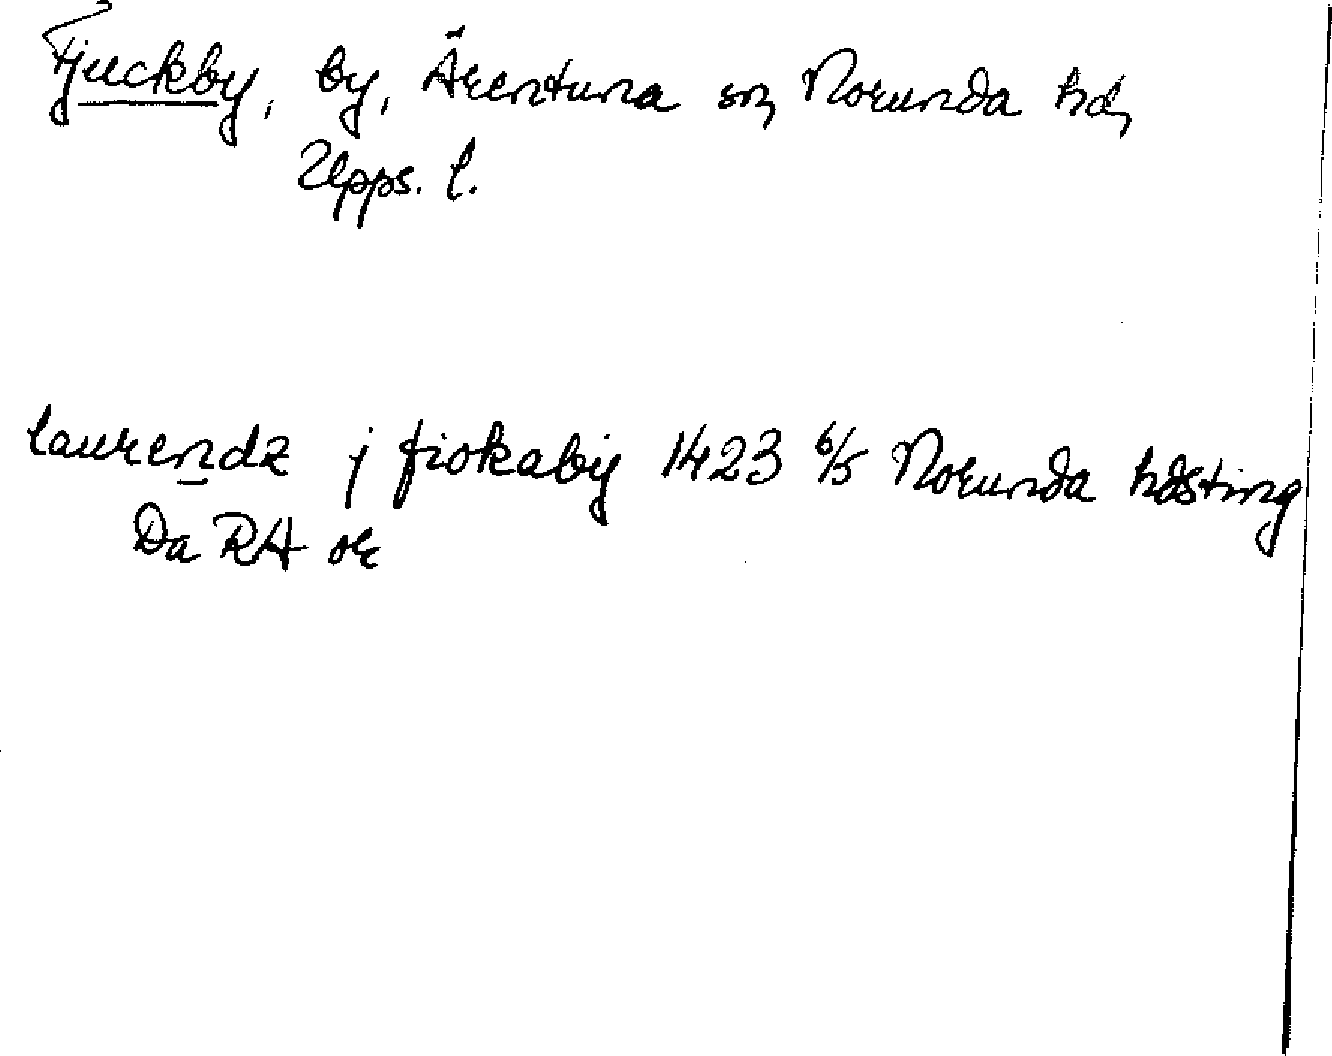 Fjuckby, by, Ärentuna sn, Norunda hd,
Upps. l.
laurendz j fiokaby 1423 6/5 Norunda hdsting
Da RA or